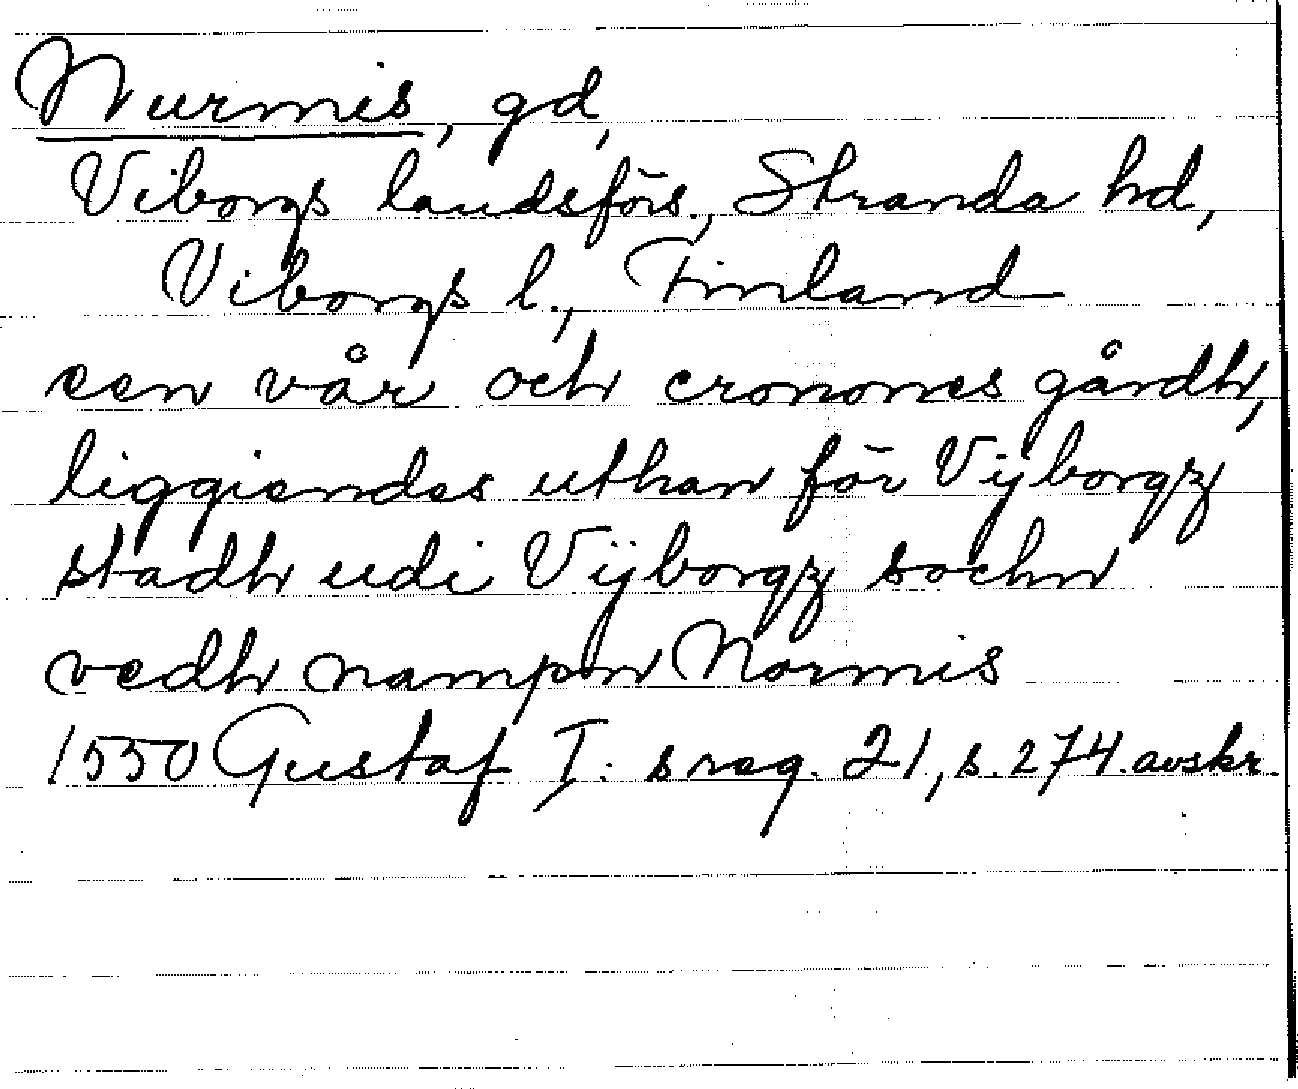 Nurmis, gd,
Viborgs landsförs., Stranda hd,
Viborgs l., Finland
een vår och cronones gårdh,
liggiendes uthan för Vijborgz
stadh udi Vijborgz sochn
vedh nampn Normis
1550 Gustaf I: s reg. 21, s. 274. avskr.